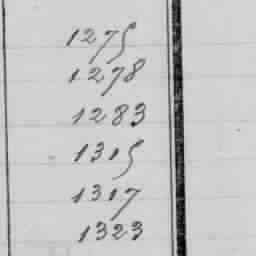 1275
1278
1283
1315
1317
1323